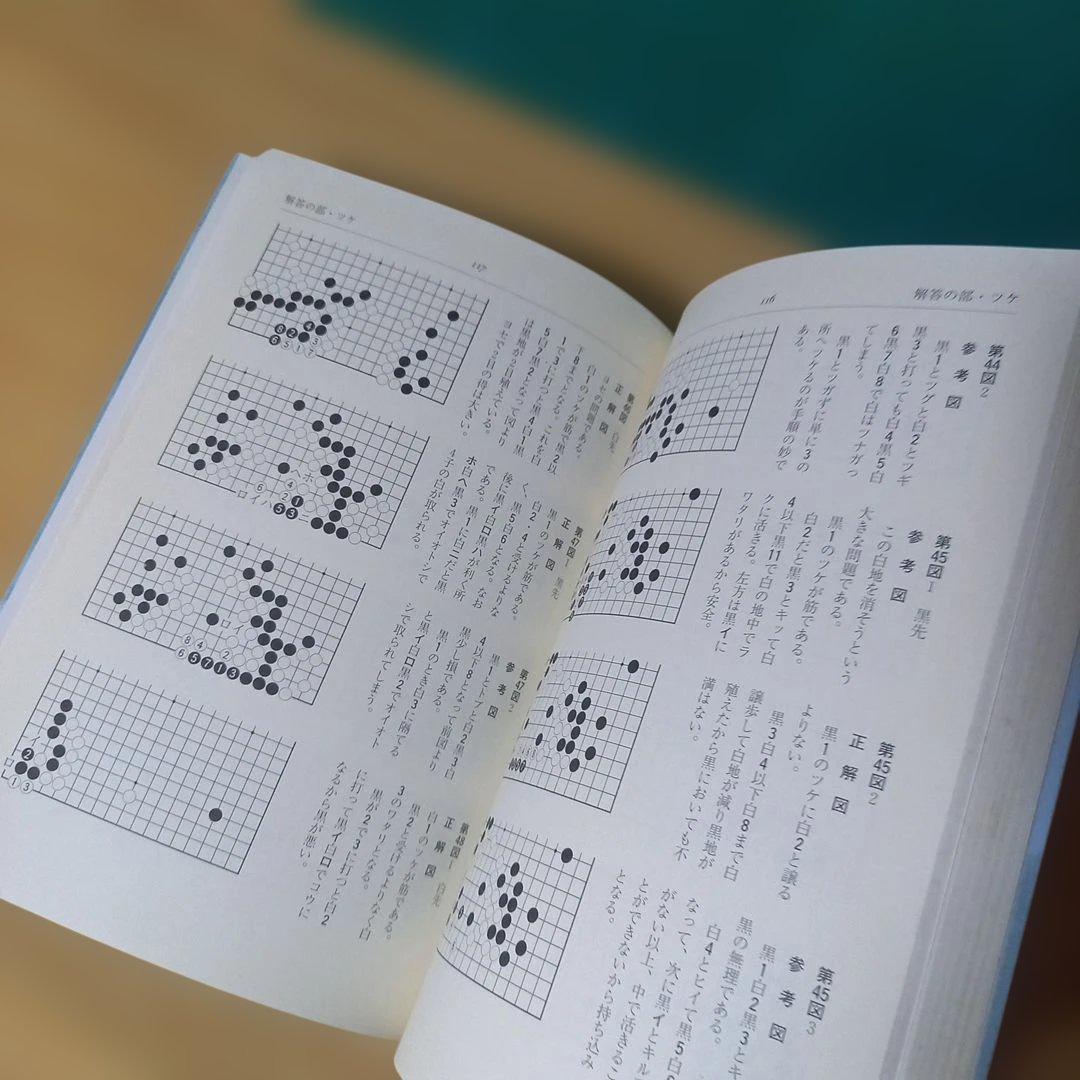 解答の部・ツケ
116
第44図2
参考図
黒1とツグと白2とツギ
黒3と打っても白4黒5白
6黒7白8で白はツナガっ
てしまう。
黒1とツガずに単に3の
所へツケるのが手順の妙で
ある。
第45図1 黒先
参考図
この白地を消そうという
大きな問題である。
黒1のツケが筋である。
白2だと黒3とキッて白
4以下黒11で白の地中でラ
クに活きる。左方は黒イに
ワタリがあるから安全。
第45図2
正解図
黒1のツケに白2と譲る
よりない。
黒3白4以下白8まで白
譲歩して白地が減り黒地が
殖えたから黒においても不
満はない。
第45図3
参考図
黒1白2黒3とキ
黒の無理である。
白4とヒイて黒5白
なって、次に黒イとキル
がない以上、中で活きるこ
とができないから持ち込み
となる。
解答の部・ツケ
117
第46図 白先
正解図
ヨセの問題である。
白1のツケが筋で黒2以
下8までとなる。これを白
1で3に打つと黒4白1黒
5白7黒2となって図より
は黒地が2目殖えている。
ヨセで2目の得は大きい。
第47図1 黒先
正解図
黒1のツケが筋である。
白2・4と受けるよりな
く、黒5白6となる。なお
後に黒イ白ロ黒ハが利く所
である。黒1に白ニだと黒
ホ白ヘ黒3でオイオトシで
4子の白が取られる。
第47図2
参考図
黒1とトブと白2黒3白
4以下8となって前図より
黒少し損である。
黒1のとき白3に隔てる
と黒イ白ロ黒2でオイオト
シで取られてしまう。
第48図1 白先
正解図
白1のツケが筋である。
黒2と受けるよりなく白
3のワタリとなる。
黒が2で3に打つと白2
に打って黒イ白ロでコウに
なるから黒が悪い。